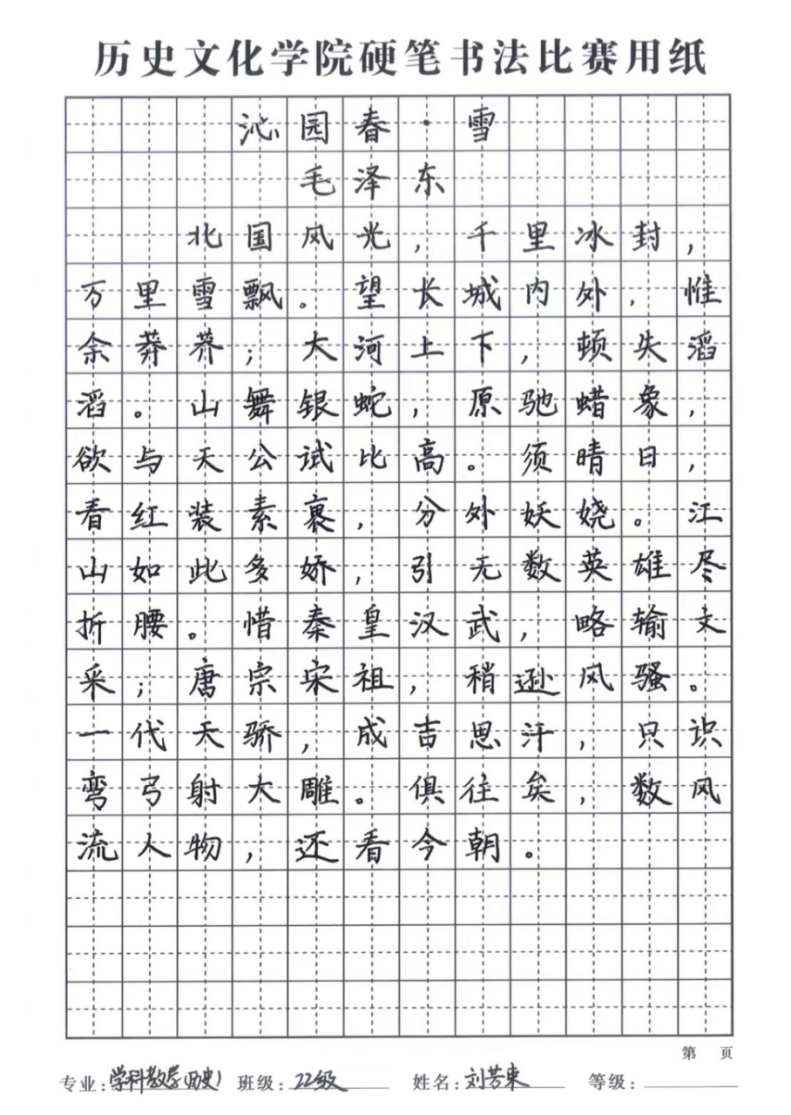 历史文化学院硬笔书法比赛用纸
沁园春·雪
毛泽东
北国风光，千里冰封，
万里雪飘。望长城内外，惟
余莽莽；大河上下，顿失滔
滔。山舞银蛇，原驰蜡象，
欲与天公试比高。须晴日，
看红装素裹，分外妖娆。江
山如此多娇，引无数英雄尽
折腰。惜秦皇汉武，略输文
采；唐宗宋祖，稍逊风骚。
一代天骄，成吉思汗，只识
弯弓射大雕。俱往矣，数风
流人物，还看今朝。
第 页
专业：学科教学(历史) 班级：22级 姓名：刘芳東 等级：